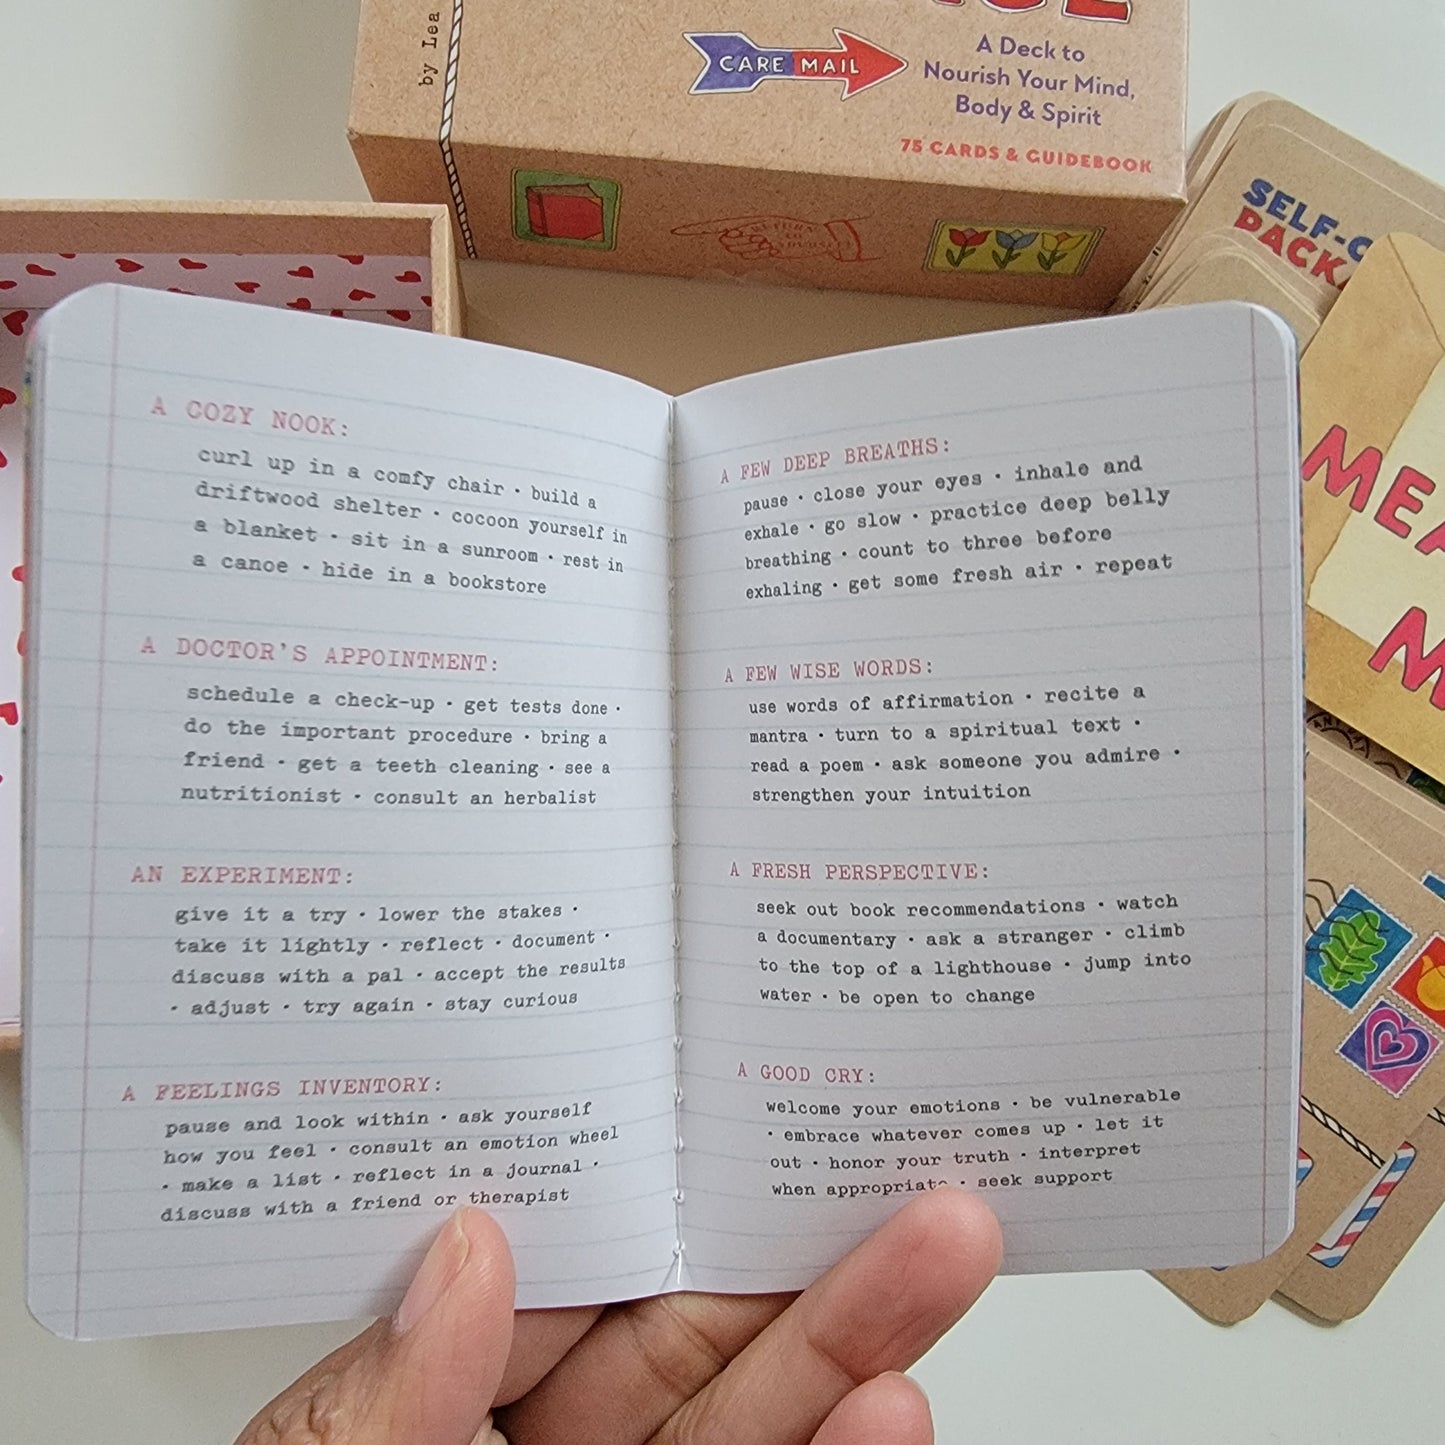 by Lea
CARE MAIL
A Deck to
Nourish Your Mind,
Body & Spirit
75 CARDS & GUIDEBOOK
RETURN
TO
SELF-C
PACKA
MEA
M
A COZY NOOK:
curl up in a comfy chair · build a
driftwood shelter · cocoon yourself in
a blanket · sit in a sunroom · rest in
a canoe · hide in a bookstore
A DOCTOR'S APPOINTMENT:
schedule a check-up · get tests done ·
do the important procedure · bring a
friend · get a teeth cleaning · see a
nutritionist · consult an herbalist
AN EXPERIMENT:
give it a try · lower the stakes ·
take it lightly · reflect · document ·
discuss with a pal · accept the results
· adjust · try again · stay curious
A FEELINGS INVENTORY:
pause and look within · ask yourself
how you feel · consult an emotion wheel
· make a list · reflect in a journal ·
discuss with a friend or therapist
A FEW DEEP BREATHS:
pause · close your eyes · inhale and
exhale · go slow · practice deep belly
breathing · count to three before
exhaling · get some fresh air · repeat
A FEW WISE WORDS:
use words of affirmation · recite a
mantra · turn to a spiritual text ·
read a poem · ask someone you admire ·
strengthen your intuition
A FRESH PERSPECTIVE:
seek out book recommendations · watch
a documentary · ask a stranger · climb
to the top of a lighthouse · jump into
water · be open to change
A GOOD CRY:
welcome your emotions · be vulnerable
· embrace whatever comes up · let it
out · honor your truth · interpret
when appropriate · seek support